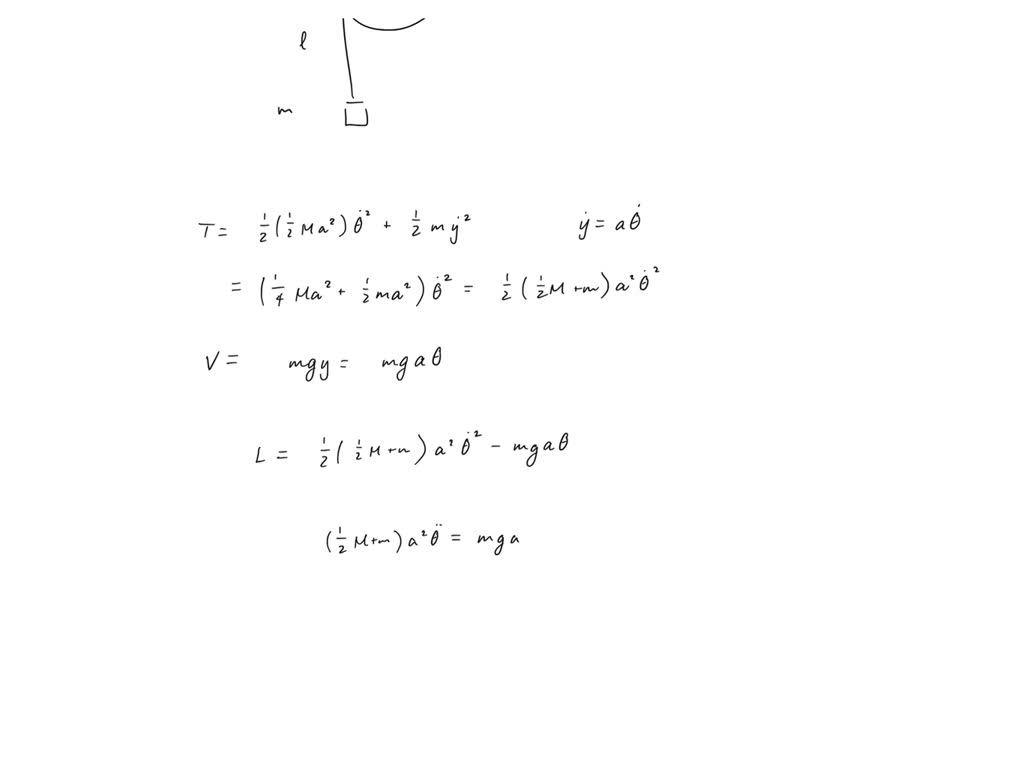 l
m
T = ½(½Ma²)θ̇² + ½mẏ² ẏ = aθ̇
= (¼Ma² + ½ma²)θ̇² = ½(½M+m)a²θ̇²
V = mgy = mgaθ
L = ½(½M+m)a²θ̇² - mgaθ
(½M+m)a²θ̈ = mga